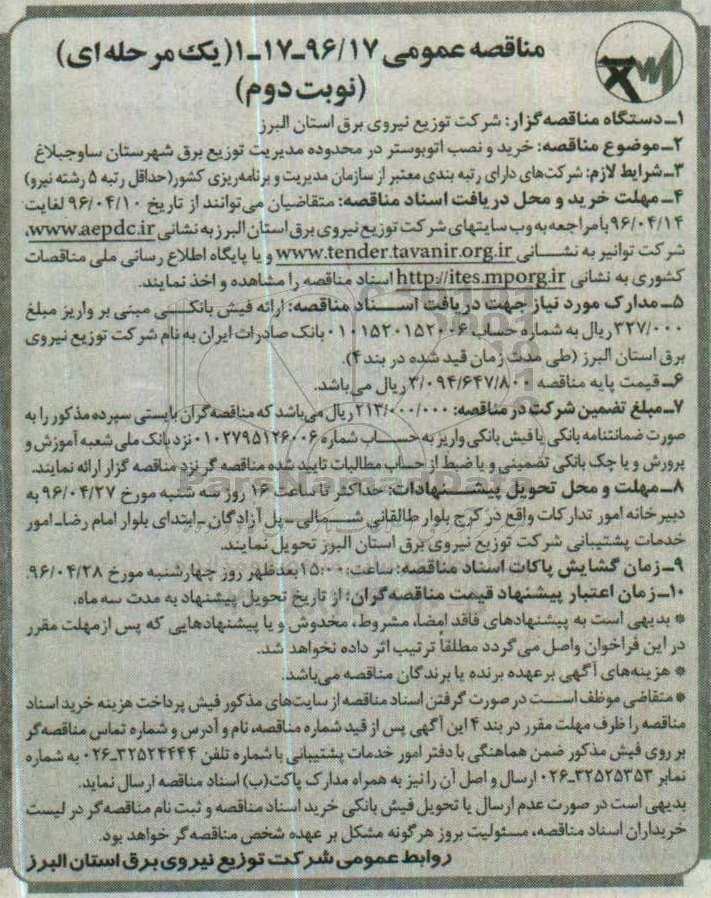 مناقصه عمومی ۹۶/۱۷-۱۷-۱(یک مرحله ای)
(نوبت دوم)
۱ـ دستگاه مناقصه گزار: شرکت توزیع نیروی برق استان البرز
۲ـ موضوع مناقصه: خرید و نصب اتوبوستر در محدوده مدیریت توزیع برق شهرستان ساوجبلاغ
۳ـ شرایط لازم: شرکت‌های دارای رتبه بندی معتبر از سازمان مدیریت و برنامه‌ریزی کشور(حداقل رتبه ۵ رشته نیرو)
۴ـ مهلت خرید و محل دریافت اسناد مناقصه: متقاضیان می‌توانند از تاریخ ۹۶/۰۴/۱۰ لغایت
۹۶/۰۴/۱۴ با مراجعه به وب سایتهای شرکت توزیع نیروی برق استان البرز به نشانی www.aepdc.ir،
شرکت توانیر به نشـــانی www.tender.tavanir.org.ir و یا پایگاه اطلاع رسانی ملی مناقصات
کشوری به نشانی http://ites.mporg.ir اسناد مناقصه را مشاهده و اخذ نمایند.
۵ـ مدارک مورد نیاز جهت دریافت اســناد مناقصه: ارائه فیش بانکــی مبنی بر واریز مبلغ
۳۲۷/۰۰۰ ریال به شماره حساب ۰۱۰۱۵۲۰۱۵۲۰۰۶ بانک صادرات ایران به نام شرکت توزیع نیروی
برق استان البرز (طی مدت زمان قید شده در بند ۴).
۶ـ قیمت پایه مناقصه ۳/۰۹۴/۶۴۷/۸۰۰ ریال می‌باشد.
۷ـ مبلغ تضمین شرکت در مناقصه: ۲۱۳/۰۰۰/۰۰۰ ریال می‌باشد که مناقصه‌گران بایستی سپرده مذکور را به
صورت ضمانتنامه بانکی یا فیش بانکی واریز به حســاب شماره ۰۱۰۲۷۹۵۱۲۶۰۰۶ نزد بانک ملی شعبه آموزش و
پرورش و یا چک بانکی تضمینی و یا ضبط از حساب مطالبات تایید شده مناقصه گر نزد مناقصه گزار ارائه نمایند.
۸ـ مهلت و محل تحویل پیشـــنهادات: حداکثر تا ساعت ۱۶ روز سه شنبه مورخ ۹۶/۰۴/۲۷ به
دبیرخانه امور تدارکات واقع در کرج بلوار طالقانی شـــمالی ـ پل آزادگان ـ ابتدای بلوار امام رضا ـ امور
خدمات پشتیبانی شرکت توزیع نیروی برق استان البرز تحویل نمایند.
۹ـ زمان گشایش پاکات اسناد مناقصه: ساعت: ۱۵:۰۰ بعدظهر روز چهارشنبه مورخ ۹۶/۰۴/۲۸.
۱۰ـ زمان اعتبار پیشنهاد قیمت مناقصه‌گران: از تاریخ تحویل پیشنهاد به مدت سه ماه.
* بدیهی است به پیشنهادهای فاقد امضا، مشروط، مخدوش و یا پیشنهادهایی که پس از مهلت مقرر
در این فراخوان واصل می‌گردد مطلقاً ترتیب اثر داده نخواهد شد.
* هزینه‌های آگهی بر عهده برنده یا برندگان مناقصه می‌باشد.
* متقاضی موظف اســت در صورت گرفتن اسناد مناقصه از سایت‌های مذکور فیش پرداخت هزینه خرید اسناد
مناقصه را ظرف مهلت مقرر در بند ۴ این آگهی پس از قید شماره مناقصه، نام و آدرس و شماره تماس مناقصه‌گر
بر روی فیش مذکور ضمن هماهنگی با دفتر امور خدمات پشتیبانی با شماره تلفن ۳۲۵۲۴۴۴۴-۰۲۶ به شماره
نمابر ۳۲۵۲۵۳۵۳-۰۲۶ ارسال و اصل آن را نیز به همراه مدارک پاکت(ب) اسناد مناقصه ارسال نماید.
بدیهی است در صورت عدم ارسال یا تحویل فیش بانکی خرید اسناد مناقصه و ثبت نام مناقصه‌گر در لیست
خریداران اسناد مناقصه، مسئولیت بروز هرگونه مشکل بر عهده شخص مناقصه‌گر خواهد بود.
روابط عمومی شرکت توزیع نیروی برق استان البرز